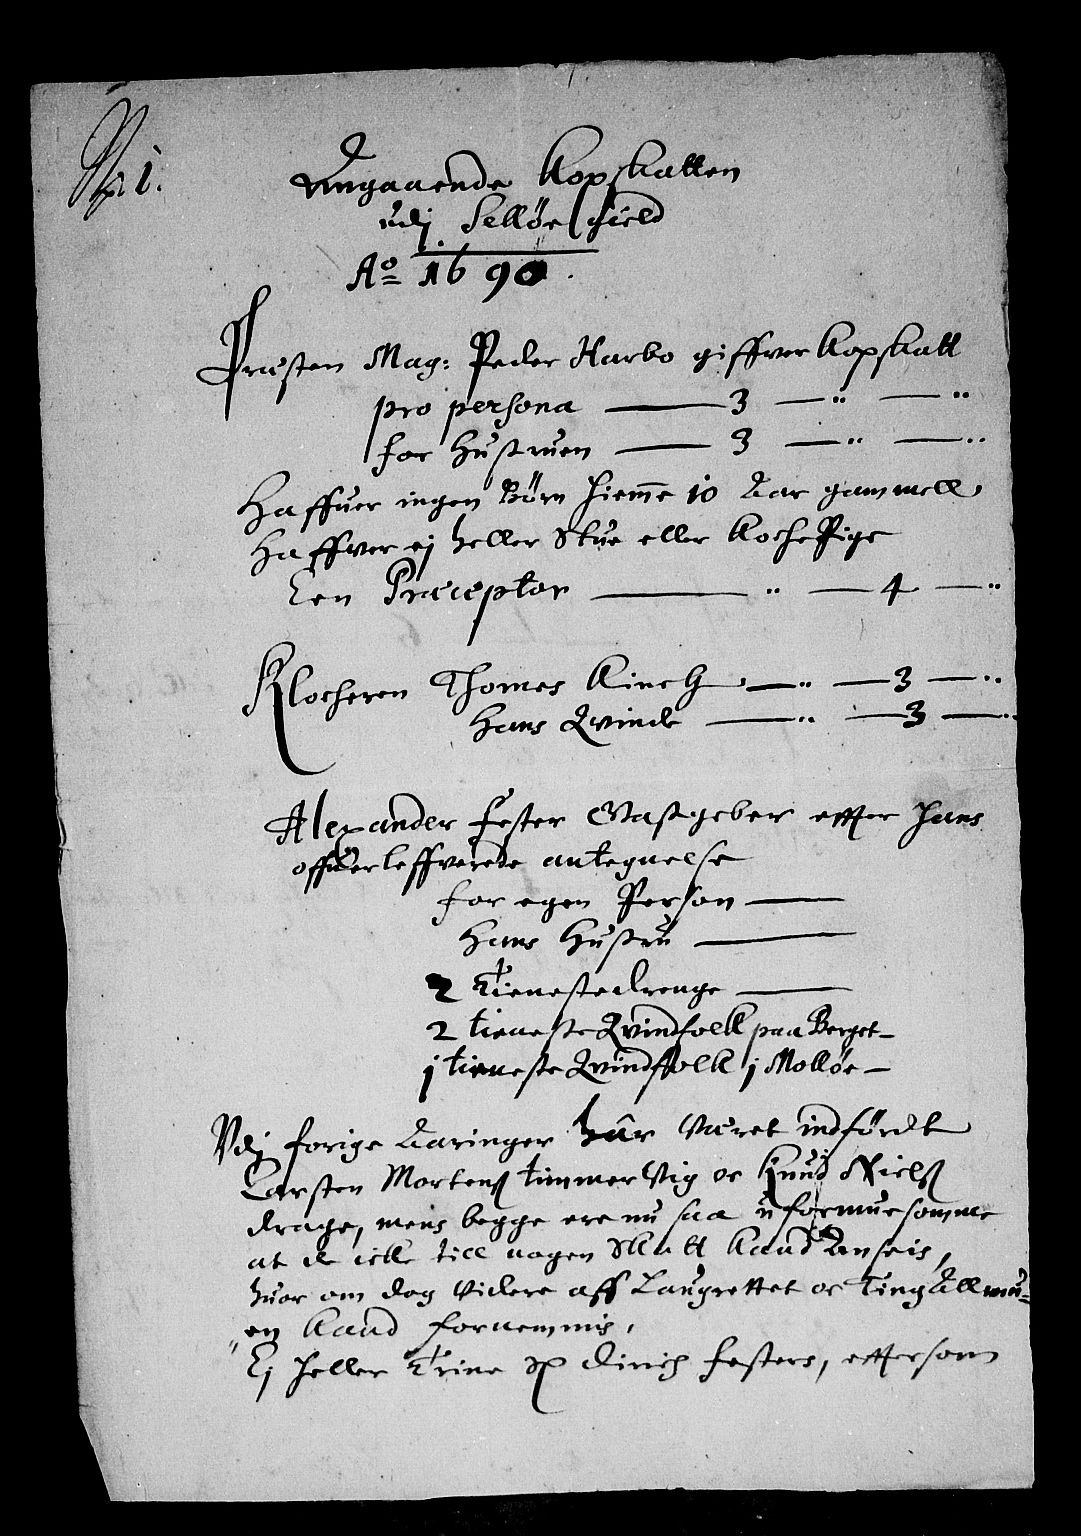 No 1.
Angaaende Kopskatten
udj Selløe Gield
Ao 1690.
Præsten Mag: Peder Harbo giffver Kopskatt
pro persona — 3 — " — "
for Hustruen — 3 — " — "
Haffuer ingen Børn hiem̄e 10 Aar gammell
Haffver ej heller Stue eller KochePige
Een Præceptor — " — 4 — "
Klocheren Thomes Kinch — " — 3 — "
Hans Qvinde — " — 3 — "
Alexander Fester Gastgeber effter hans
offuerleffverede antegnelse
for egen Person —
Hans Hustru —
2 Tienestedrenge —
2 tieneste Qvindfolk paa Berget —
j tieneste Qvindffolk j Molløe —
Vdj forige Aaringer hâr Været indførdt
Carsten Mortenß timmerVig oc Knud Nielß
drage, mens begge ere nu saa uformuesomme
at de icke till nogen Skatt kand Anseis,
huor om dog Videre aff Laugrettet oc TingAllmu-
en kand fornemmis,
Ej heller Trine Sl Dirich Festers, effersom